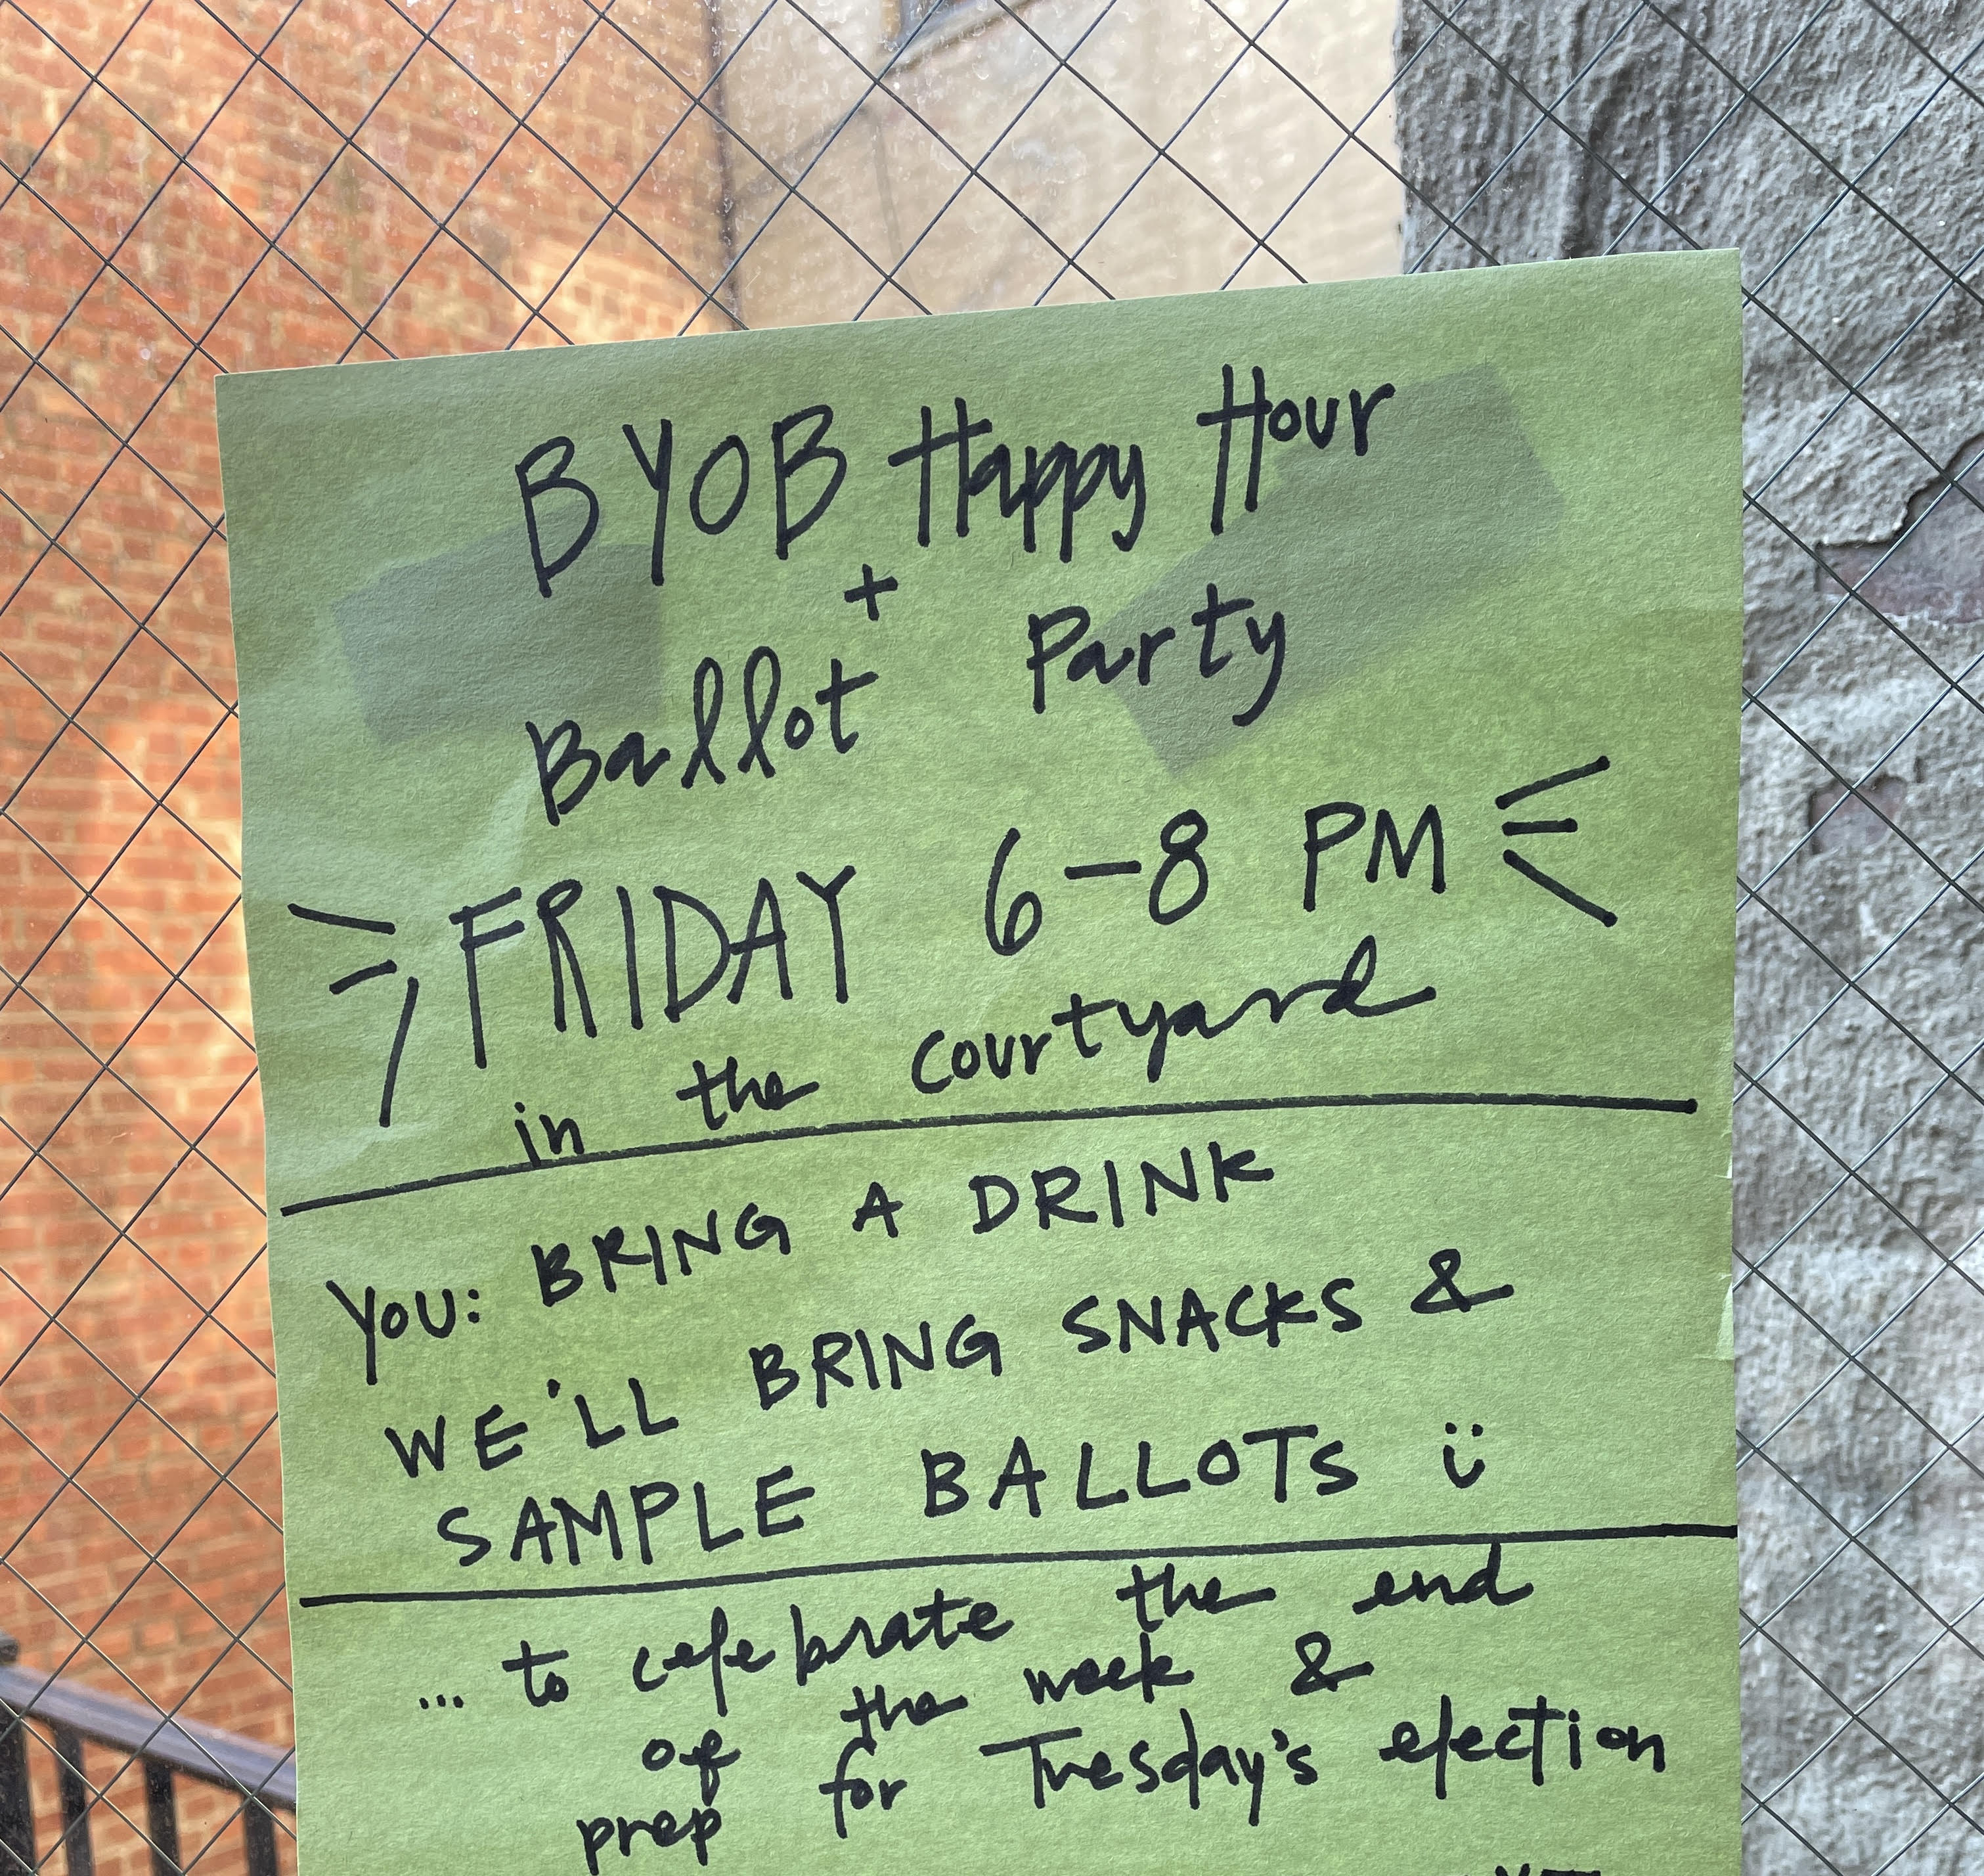 BYOB Happy Hour
+
Ballot Party
FRIDAY 6-8 PM
in the courtyard
YOU: BRING A DRINK
WE'LL BRING SNACKS &
SAMPLE BALLOTS ü
... to celebrate the end
of the week &
prep for Tuesday's election